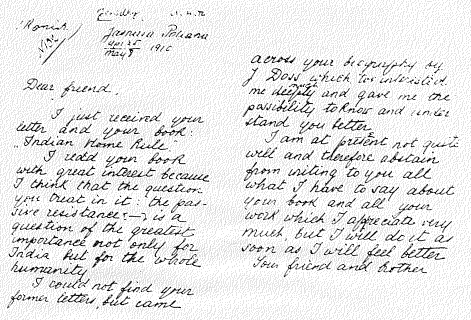 Jasnaia Poliana
1910
Dear friend.
I just received your
letter and your book:
"Indian Home Rule"
I read your book
with great interest because
I think that the question
you treat in it: the pas-
sive resistance — is a
question of the greatest
importance not only for
India but for the whole
humanity
I could not find your
former letters, but came
across your biography by
J Doss which interested
me deeply and gave me the
possibility to know and under
stand you better.
I am at present not quite
well and therefore abstain
from writing to you all
what I have to say about
your book and all your
work which I appreciate very
much, but I will do it as
soon as I will feel better
Your friend and brother